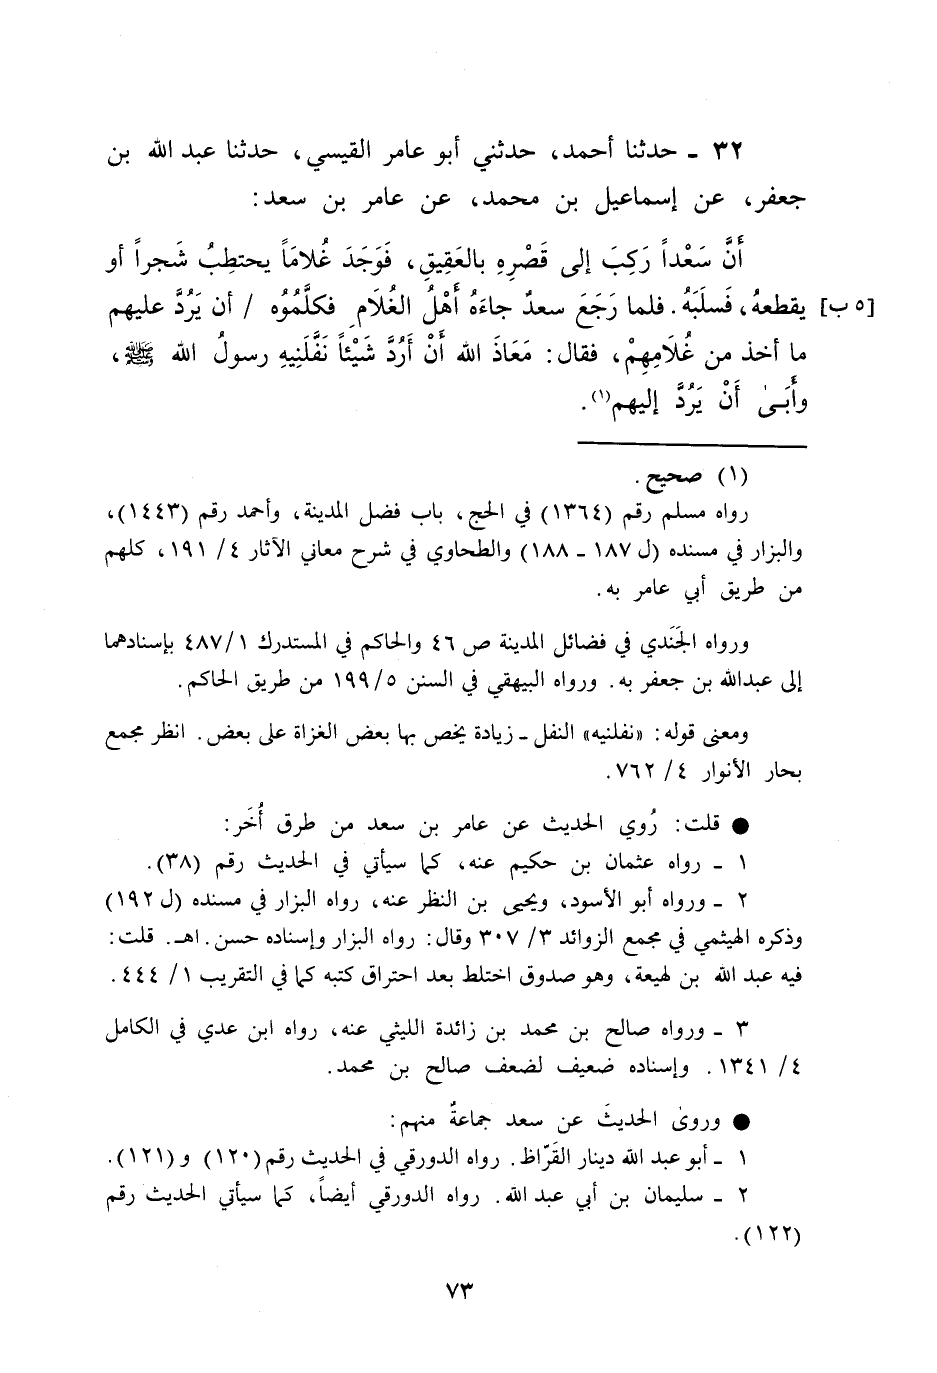 ٣٢ ـ حدثنا أحمد، حدثني أبو عامر القيسي، حدثنا عبد الله بن
جعفر، عن إسماعيل بن محمد، عن عامر بن سعد:
أَنَّ سَعْداً رَكِبَ إلى قَصْرِهِ بالعَقِيقِ، فَوَجَدَ غُلامَاً يحتطِبُ شَجراً أو
[٥ ب] يقطعهُ، فَسلَبَهُ. فلما رَجَعَ سعدٌ جاءَهُ أَهْلُ الغُلَامِ فكلَّمُوُه / أن يَرُدَّ عليهم
ما أخذ من غُلَامِهِمْ، فقال: مَعَاذَ الله أَنْ أَرُدَّ شَيْئاً نَفَّلَنِيهِ رسولُ الله ﷺ،
وأَبَىٰ أَنْ يَرُدَّ إليهم(١).
(١) صحيح.
رواه مسلم رقم (١٣٦٤) في الحج، باب فضل المدينة، وأحمد رقم (١٤٤٣)،
والبزار في مسنده (ل ١٨٧ ـ ١٨٨) والطحاوي في شرح معاني الآثار ٤/ ١٩١، كلهم
من طريق أبي عامر به.
ورواه الجَنَدي في فضائل المدينة ص ٤٦ والحاكم في المستدرك ١/ ٤٨٧ بإسنادهما
إلى عبدالله بن جعفر به. ورواه البيهقي في السنن ٥/ ١٩٩ من طريق الحاكم.
ومعنى قوله: «نفلنيه» النفل ـ زيادة يخص بها بعض الغزاة على بعض. انظر مجمع
بحار الأنوار ٤/ ٧٦٢.
● قلت: رُوي الحديث عن عامر بن سعد من طرق أُخَر:
١ ـ رواه عثمان بن حكيم عنه، كما سيأتي في الحديث رقم (٣٨).
٢ ـ ورواه أبو الأسود، ويحيى بن النظر عنه، رواه البزار في مسنده (ل ١٩٢)
وذكره الهيثمي في مجمع الزوائد ٣/ ٣٠٧ وقال: رواه البزار وإسناده حسن. اهـ. قلت:
فيه عبد الله بن لهيعة، وهو صدوق اختلط بعد احتراق كتبه كما في التقريب ١/ ٤٤٤.
٣ ـ ورواه صالح بن محمد بن زائدة الليثي عنه، رواه ابن عدي في الكامل
٤/ ١٣٤١. وإسناده ضعيف لضعف صالح بن محمد.
● وروىٰ الحديثَ عن سعد جماعةٌ منهم:
١ ـ أبو عبد الله دينار القَرّاظ. رواه الدورقي في الحديث رقم (١٢٠) و (١٢١).
٢ ـ سليمان بن أبي عبد الله. رواه الدورقي أيضاً، كما سيأتي الحديث رقم
(١٢٢).
٧٣